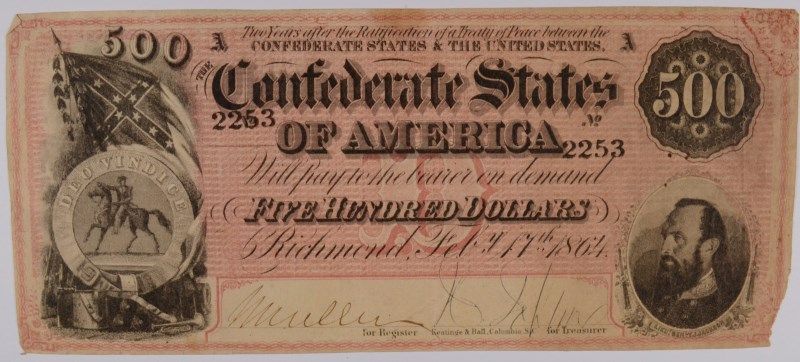 Two Years after the Ratification of a Treaty of Peace between the
500 A CONFEDERATE STATES & THE UNITED STATES. A
THE Confederate States 500
2253 OF AMERICA No
2253
Will pay to the bearer on demand
FIVE HUNDRED DOLLARS
DEO VINDICE
Richmond, Feby. 17th 1864.
for Register Keatinge & Ball, Columbia, S.C. for Treasurer